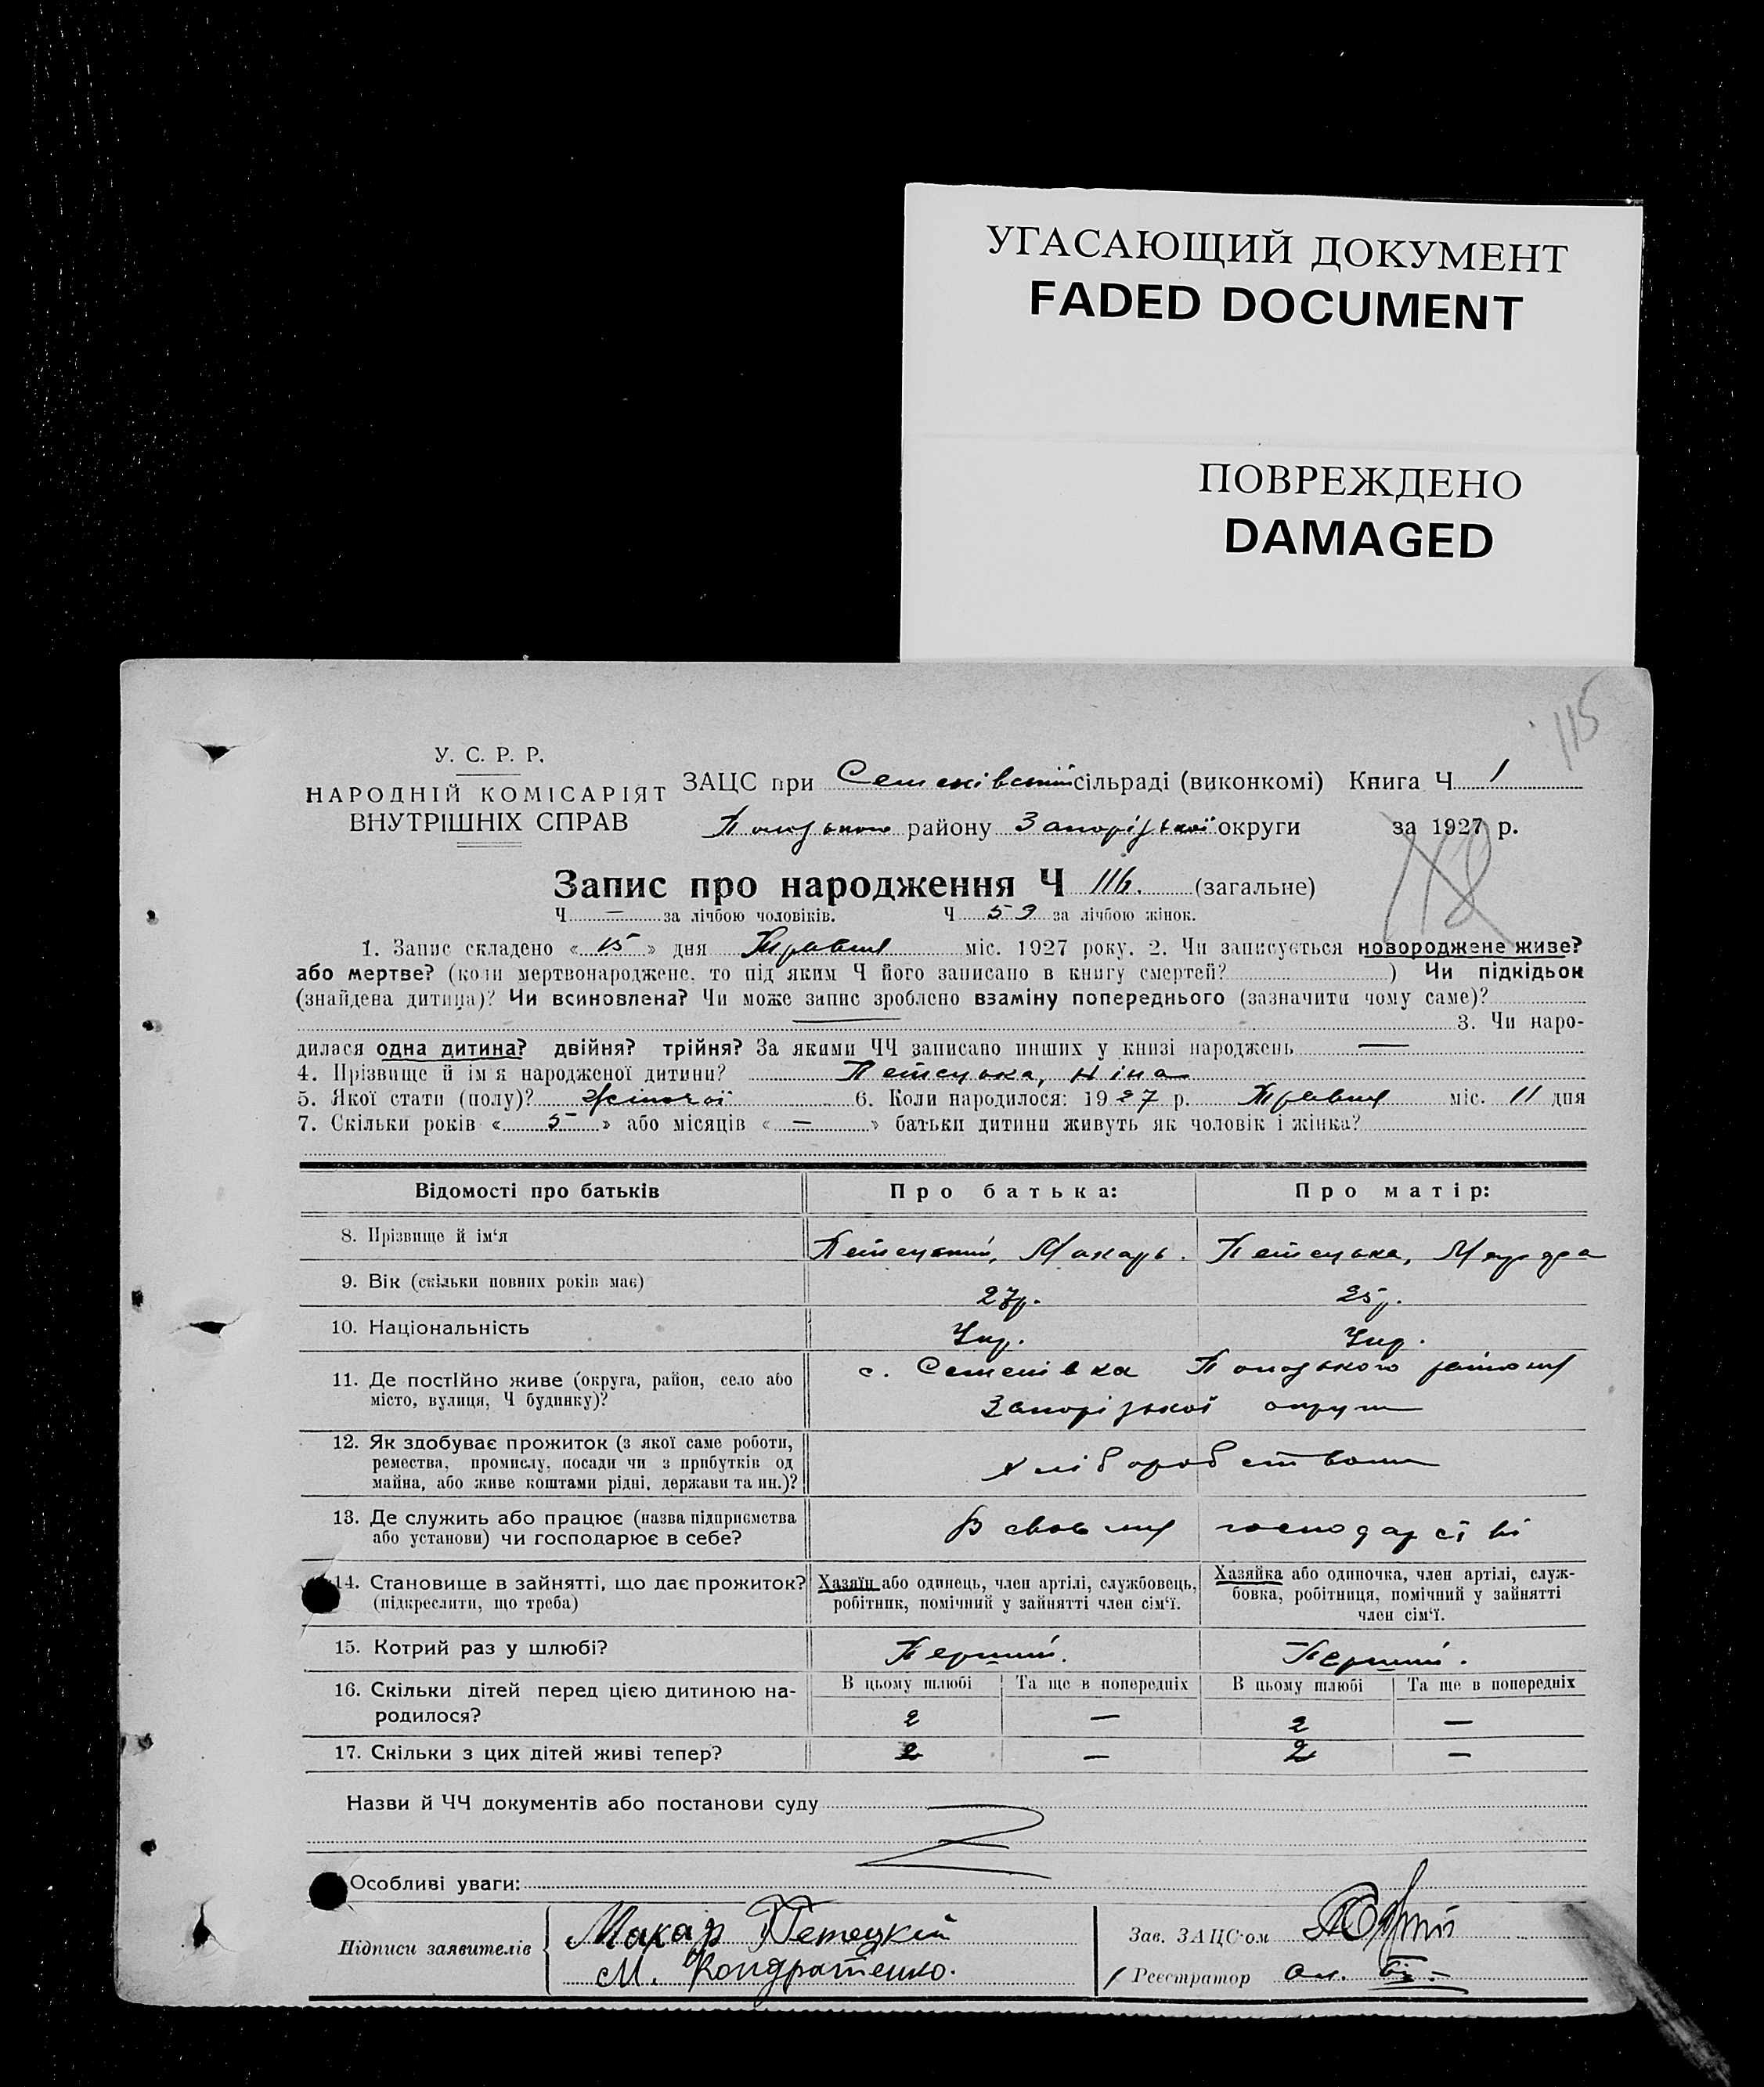 УГАСАЮЩИЙ ДОКУМЕНТ
FADED DOCUMENT
ПОВРЕЖДЕНО
DAMAGED
115
У. С. Р. Р.
НАРОДНІЙ КОМІСАРІЯТ
ВНУТРІШНІХ СПРАВ
ЗАЦС при Семенівській сільраді (виконкомі) Книга Ч 1
Пологського району Запорізької округи за 1927 р.
118
Запис про народження Ч 116. (загальне)
Ч — за лічбою чоловіків. Ч 59 за лічбою жінок.
1. Запис складено « 15 » дня Травня міс. 1927 року. 2. Чи записується новороджене живе?
або мертве? (коли мертвонароджене, то під яким Ч його записано в книгу смертей? ) Чи підкідьок
(знайдена дитина)? Чи всиновлена? Чи може запис зроблено взаміну попереднього (зазначити чому саме)?
3. Чи наро-
дилася одна дитина? двійня? трійня? За якими ЧЧ записано инших у книзі народжень —
4. Прізвище й ім'я народженої дитини? Петецька, Ніна
5. Якої стати (полу)? Жіночої 6. Коли народилося: 1927 р. Травня міс. 11 дня
7. Скільки років « 5 » або місяців « — » батьки дитини живуть як чоловік і жінка?
Відомості про батьків Про батька: Про матір:
8. Прізвище й ім'я Петецький, Макарь. Петецька,
9. Вік (скільки повних років має) 27р. 25р.
10. Національність Укр. Укр.
11. Де постійно живе (округа, район, село або
місто, вулиця, Ч будинку)?
с. Семенівка Пологського району
Запорізької округи
12. Як здобуває прожиток (з якої саме роботи,
ремества, промислу, посади чи з прибутків од
майна, або живе коштами рідні, держави та ин.)?
хліборобством
13. Де служить або працює (назва підприємства
або установи) чи господарює в себе?
В своєму господарстві
14. Становище в зайнятті, що дає прожиток?
(підкреслити, що треба)
Хазяїн або одинець, член артілі, службовець,
робітник, помічний у зайнятті член сім'ї.
Хазяйка або одиночка, член артілі, служ-
бовка, робітниця, помічний у зайнятті
член сім'ї.
15. Котрий раз у шлюбі? Перший. Перший.
16. Скільки дітей перед цією дитиною на-
родилося?
В цьому шлюбі Та ще в попередніх В цьому шлюбі Та ще в попередніх
2 — 2 —
17. Скільки з цих дітей живі тепер? 2 — 2 —
Назви й ЧЧ документів або постанови суду
Особливі уваги:
Підписи заявителів
Макар Петецкій
М. Кондратенко.
Зав. ЗАЦС'ом
Реєстратор